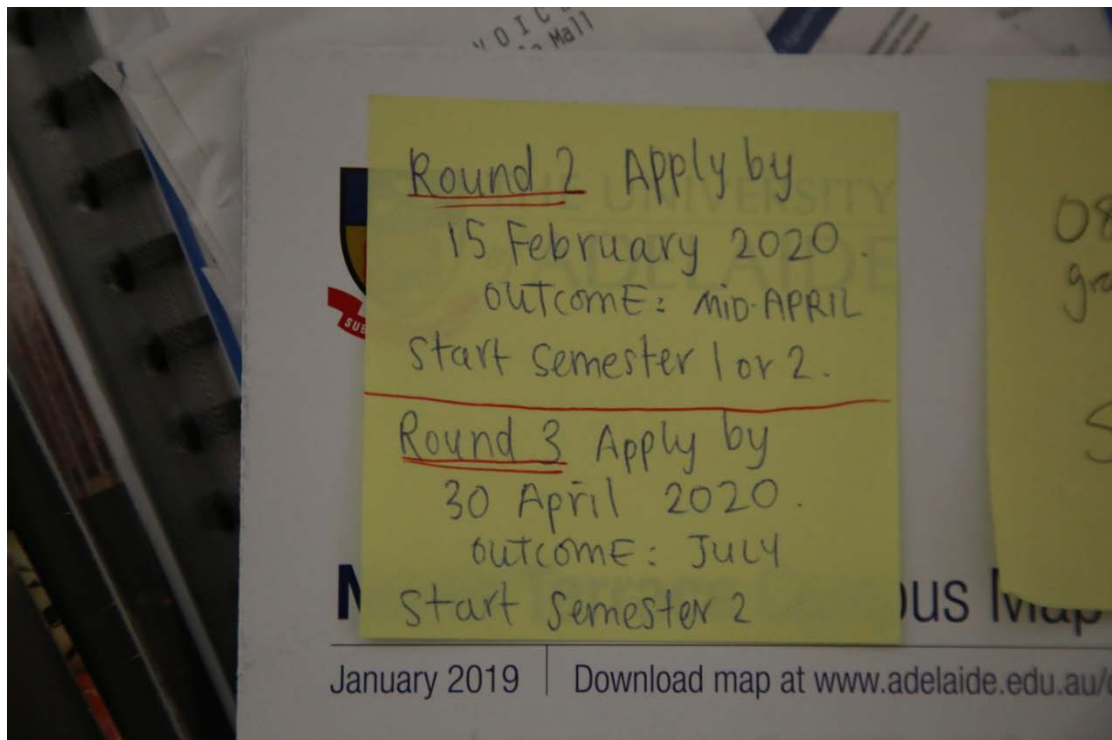 Mall
Round 2 Apply by
15 February 2020.
OUTCOME: MID-APRIL
Start semester 1 or 2.
Round 3 Apply by
30 April 2020.
OUTCOME: JULY
Start Semester 2
THE UNIVERSITY
ADELAIDE
08
January 2019
Download map at www.adelaide.edu.au/